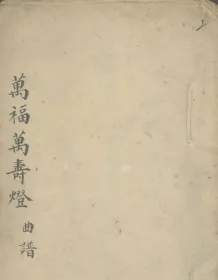 萬福萬壽燈 曲譜